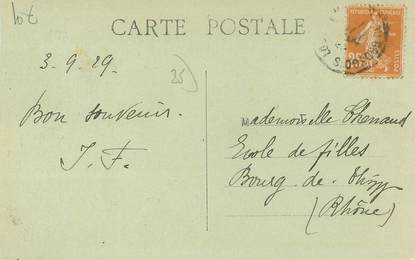 CARTE POSTALE
lot
3-9-29.
25
Bon souvenir.
J. F.
Mademoiselle Chenaud
Ecole de filles
Bourg-de-Thizy
(Rhône)